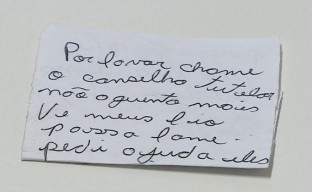 Por favor chame
o conselho tutela
não aguento mais
Ve meus
passa fome.
pedi ajuda eles